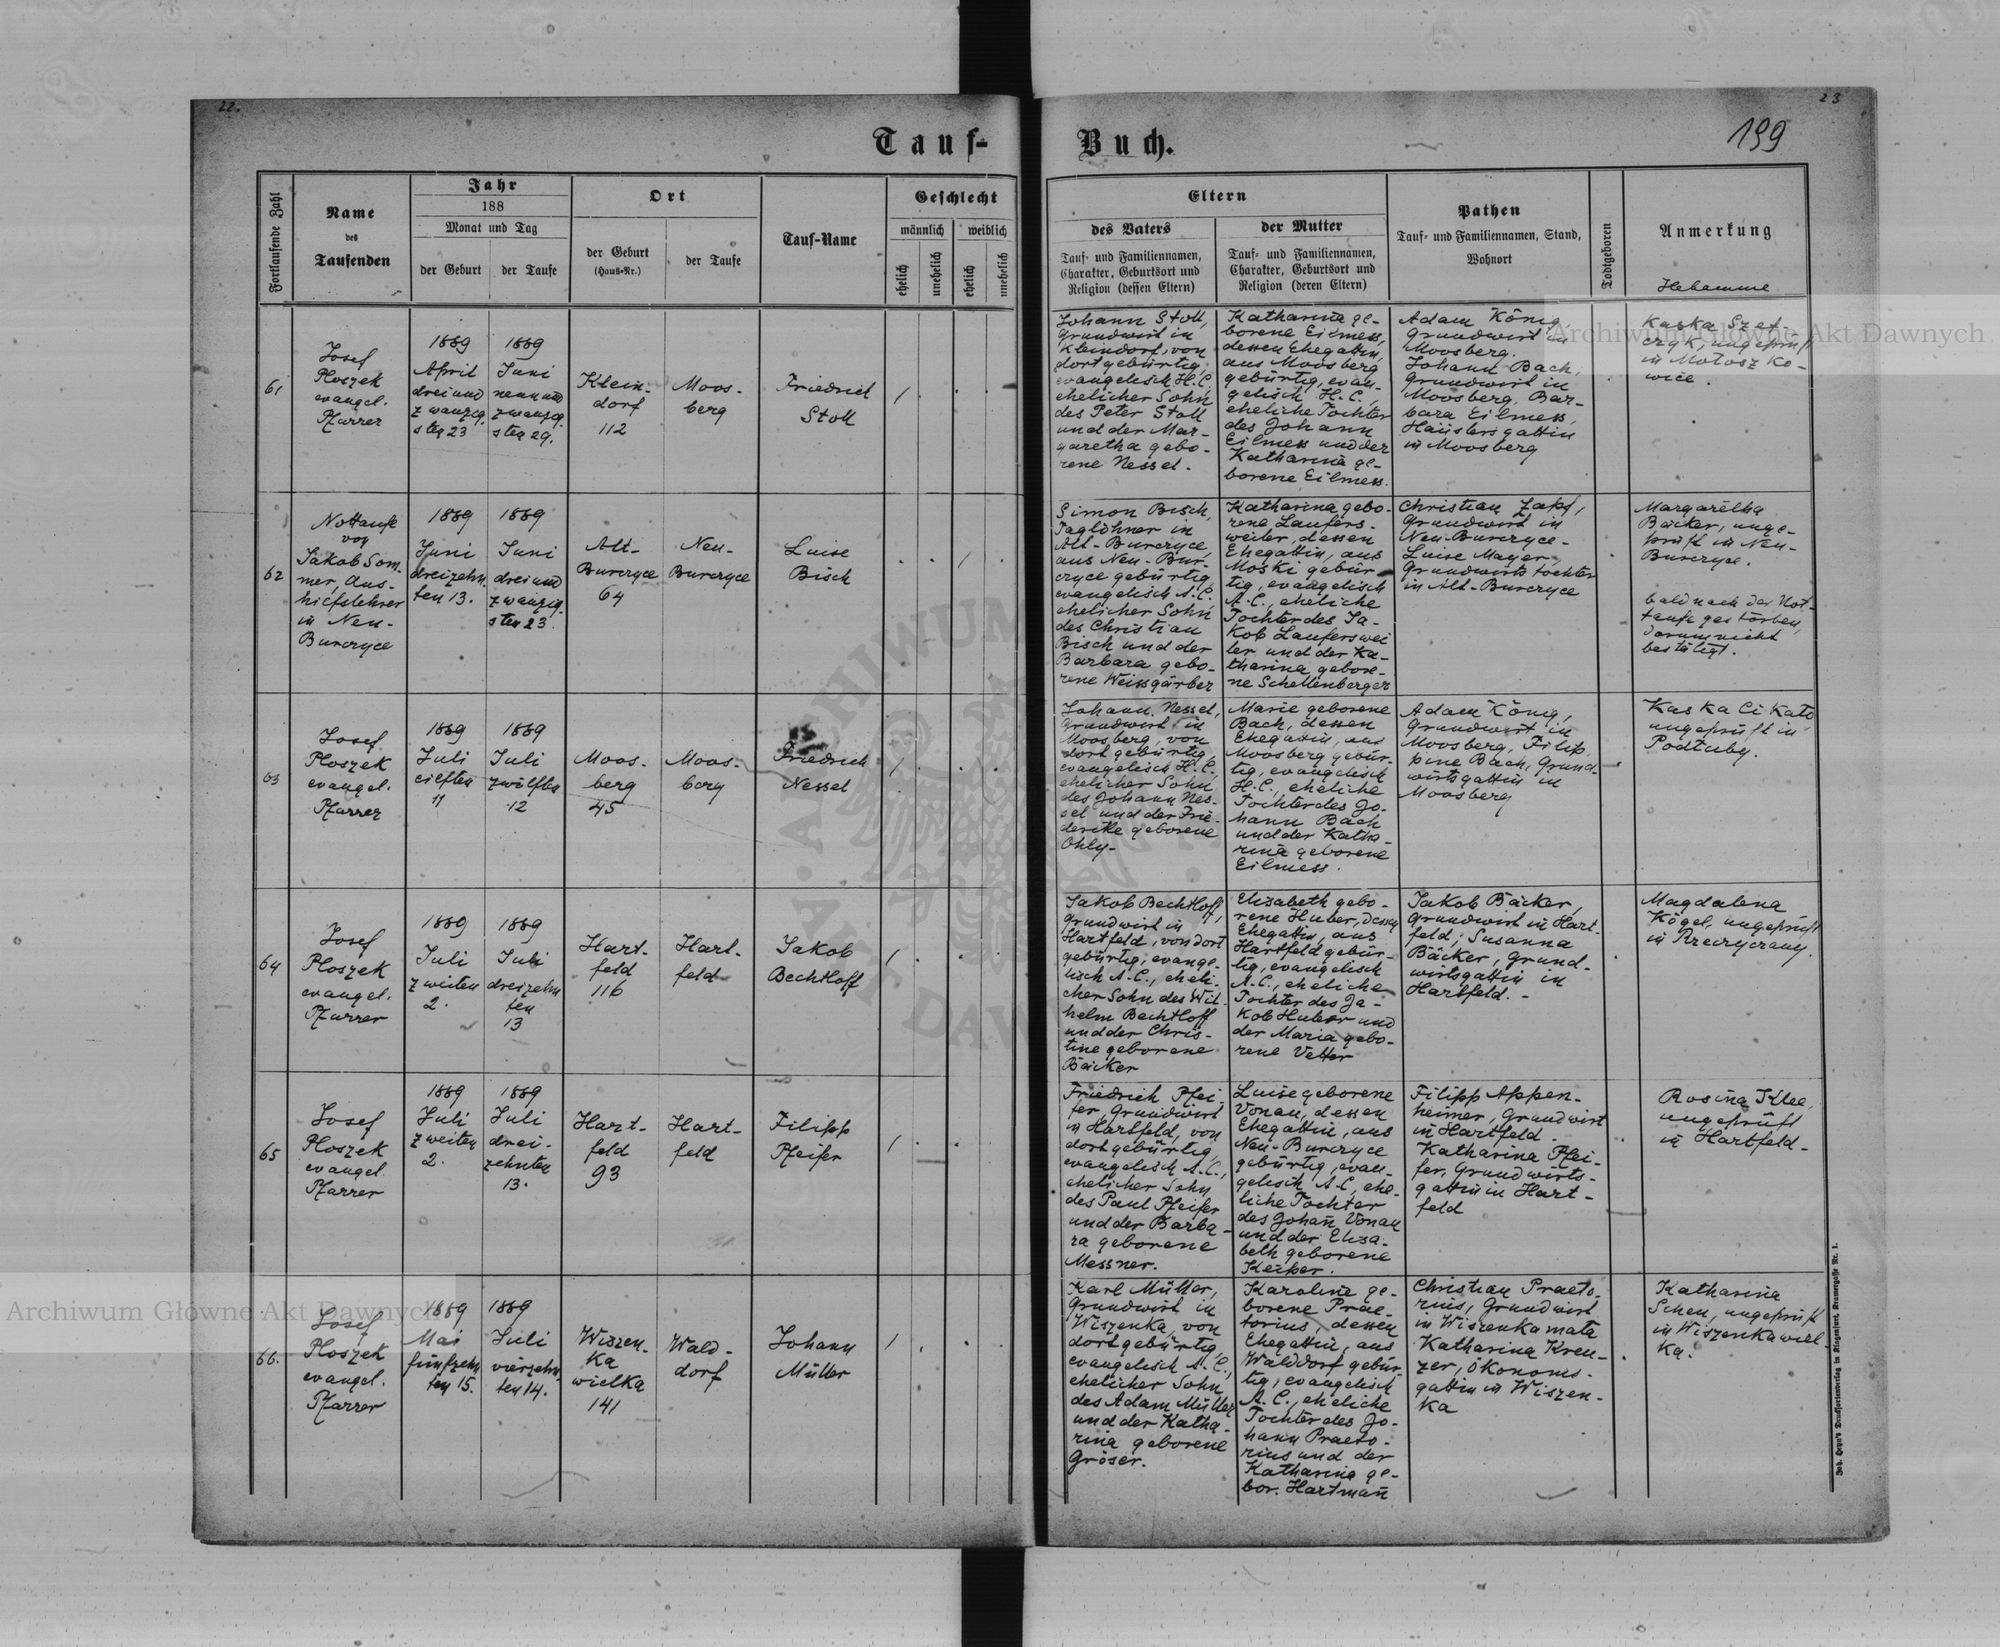 22.
23
199
Tauf-
Buch.
Fortlaufende Zahl
Name
des
Taufenden
Jahr
188
Monat und Tag
der Geburt
der Taufe
Ort
der Geburt
(Haus-Nr.)
der Taufe
Tauf-Name
Geschlecht
männlich
weiblich
ehelich
unehelich
ehelich
unehelich
Eltern
des Vaters
Tauf- und Familiennamen,
Charakter, Geburtsort und
Religion (dessen Eltern)
der Mutter
Tauf- und Familiennamen,
Charakter, Geburtsort und
Religion (deren Eltern)
Pathen
Tauf- und Familiennamen, Stand,
Wohnort
Todtgeboren
Anmerkung
Hebamme
61
Josef
Ploszek
evangel.
Pfarrer
1889
April
drei und
zwanzig
sten 23
1889
Juni
neun und
zwanzig
sten 29.
Klein-
dorf
112
Moos-
berg
Friedrich
Stoll
Johann Stoll,
Grundwirt in
Kleindorf, von
dort gebürtig,
evangelisch H.C.
ehelicher Sohn
des Peter Stoll
und der Mar-
garetha gebo-
rene Nessel.
Katharina ge-
borene Eilmess,
dessen Ehegattin,
aus Moosberg
gebürtig, evan-
gelisch H.C.,
eheliche Tochter
des Johann
Eilmess und der
Katharina ge-
borene Eilmess.
Adam König,
Grundwirt in
Moosberg.
Johann Bach,
Grundwirt in
Moosberg. Bar-
bara Eilmess,
Häuslersgattin
in Moosberg
Kaska Szef-
czyk, ungeprüft
in Motoszko-
wice.
62
Nottaufe
von
Jakob Som-
mer, Aus-
hilfslehrer
in Neu-
Burczyce
1889
Juni
dreizehn
ten 13.
1889
Juni
drei und
zwanzig
sten 23.
Alt-
Burczyce
64
Neu-
Burczyce
Luise
Bisch
Simon Bisch,
Taglöhner in
Alt-Burczyce,
aus Neu-Bur-
czyce gebürtig
evangelisch A.C.
ehelicher Sohn
des Christian
Bisch und der
Barbara gebo-
rene Weissgärber
Katharina gebo-
rene Laufers-
weiler, dessen
Ehegattin, aus
Moski gebür-
tig, evangelisch
A.C., eheliche
Tochter des Ja-
kob Lauferswei
ler und der Ka-
tharina gebore-
ne Schellenberger
Christian Zapf,
Grundwirt in
Neu-Burczyce-
Luise Mayer,
Grundwirts tochter
in Alt-Burczyce
Margaretha
Bäcker, unge-
prüft in Neu-
Burczyce.
bald nach der Not-
taufe gestorben,
darum nicht
bestätigt.
63
Josef
Ploszek
evangel.
Pfarrer
1889
Juli
eilften
11
1889
Juli
zwölften
12
Moos-
berg
45
Moos-
berg
Friedrich
Nessel
Johann Nessel,
Grundwirt in
Moosberg, von
dort gebürtig,
evangelisch H.C.,
ehelicher Sohn
des Johann Nes-
sel und der Frie-
derike geborene
Ohly-
Marie geborene
Bach, dessen
Ehegattin, aus
Moosberg gebür-
tig, evangelisch
H.C., eheliche
Tochter des Jo-
hann Bach
und der Katha-
rina geborene
Eilmess.
Adam König,
Grundwirt in
Moosberg, Filip-
pine Bach, Grund-
wirtsgattin in
Moosberg
Kaska Cikato
ungeprüft in
Podtuby.
64
Josef
Ploszek
evangel.
Pfarrer
1889
Juli
zweiten
2.
1889
Juli
dreizehn
ten
13
Hart-
feld
116
Hart-
feld
Jakob
Bechtloff
Jakob Bechtloff,
Grundwirt in
Hartfeld, von dort
gebürtig, evange-
lisch A.C., eheli-
cher Sohn des Wil-
helm Bechtloff
und der Chris-
tine geborene
Bäcker
Elisabeth gebo-
rene Huber, dessen
Ehegattin, aus
Hartfeld gebür-
tig, evangelisch
A.C., eheliche
Tochter des Ja-
kob Huber und
der Maria gebo-
rene Vetter
Jakob Bäcker,
Grundwirt in Hart-
feld; Susanna
Bäcker, Grund-
wirtsgattin in
Hartfeld.-
Magdalena
Kögel, ungeprüft
in Rzeczyczany.
65
Josef
Ploszek
evangel.
Pfarrer
1889
Juli
zweiten
2.
1889
Juli
drei-
zehnten
13.
Hart-
feld
93
Hart-
feld
Filipp
Pfeifer
Friedrich Pfei-
fer, Grundwirt
in Hartfeld, von
dort gebürtig,
evangelisch A.C.,
ehelicher Sohn
des Paul Pfeifer
und der Barba-
ra geborene
Messner.
Luise geborene
Vonau, dessen
Ehegattin, aus
Neu-Burczyce
gebürtig, evan-
gelisch A.C., ehe-
liche Tochter
des Johan̄ Vonau
und der Elisa-
beth geborene
Keiper.
Filipp Appen-
heimer, Grundwirt
in Hartfeld.
Katharina Pfei-
fer, Grundwirts-
gattin in Hart-
feld
Rosina Klee,
ungeprüft
in Hartfeld-
66.
Josef
Ploszek
evangel.
Pfarrer
1889
Mai
fünfzehn
ten 15.
1889
Juli
vierzehn
ten 14.
Wiszen-
ka
wielka
141
Wald-
dorf
Johann
Müller
Karl Müller,
Grundwirt in
Wiszenka, von
dort gebürtig,
evangelisch A.C.,
ehelicher Sohn
des Adam Müller
und der Katha-
rina geborene
Gröser.
Karoline ge-
borene Prae-
torius, dessen
Ehegattin, aus
Walddorf gebür
tig, evangelisch
A.C., eheliche
Tochter des Jo-
hann Praeto-
rius und der
Katharina ge-
bor. Hartman̄
Christian Praeto-
rius, Grundwirt
in Wiszenka mała
Katharina Kreu-
zer, Ökonoms-
gattin in Wiszen-
ka
Katharina
Scheu, ungeprüft
in Wiszenka wiel-
ka.
Joh. Heyn's Drucksortenverlag in Klagenfurt, Kramergasse Nr. 1.
Archiwum Główne Akt Dawnych
Archiwum Główne Akt Dawnych